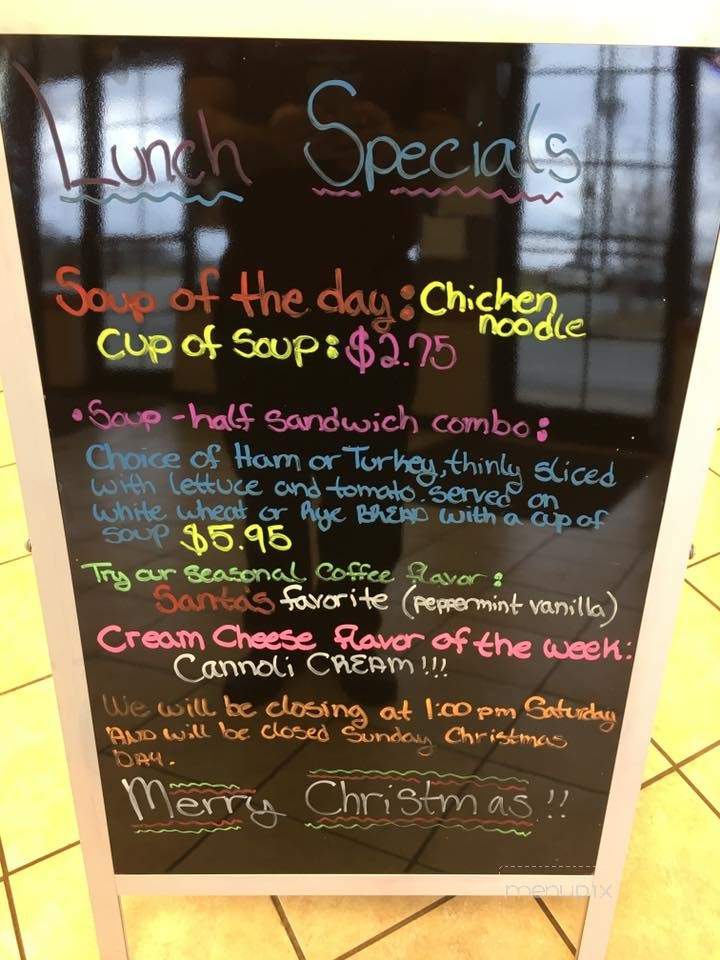 Lunch Specials
Soup of the day: Chicken
noodle
Cup of Soup: $2.75
• Soup - half sandwich combo:
Choice of Ham or Turkey, thinly sliced
with lettuce and tomato. served on
white wheat or Rye BREAD with a cup of
soup $5.95
Try our seasonal coffee flavor:
Santa's favorite (peppermint vanilla)
Cream Cheese flavor of the week:
Cannoli CREAM!!!
We will be closing at 1:00 pm Saturday
AND will be closed Sunday Christmas
DAY.
Merry Christmas!!
menupix